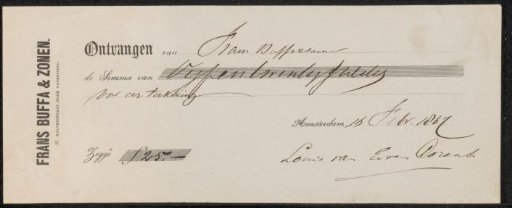 FRANS BUFFA & ZONEN.
Ontvangen van Frans Buffa & Zonen
de Somma van Vijfentwintig gulden
voor een tekening
Amsterdam, 16 Febr. 1867
Zegge f 25.—
Louis van